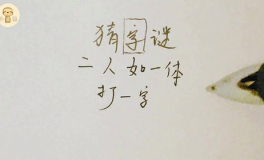 猜字谜
二人如一体
打一字